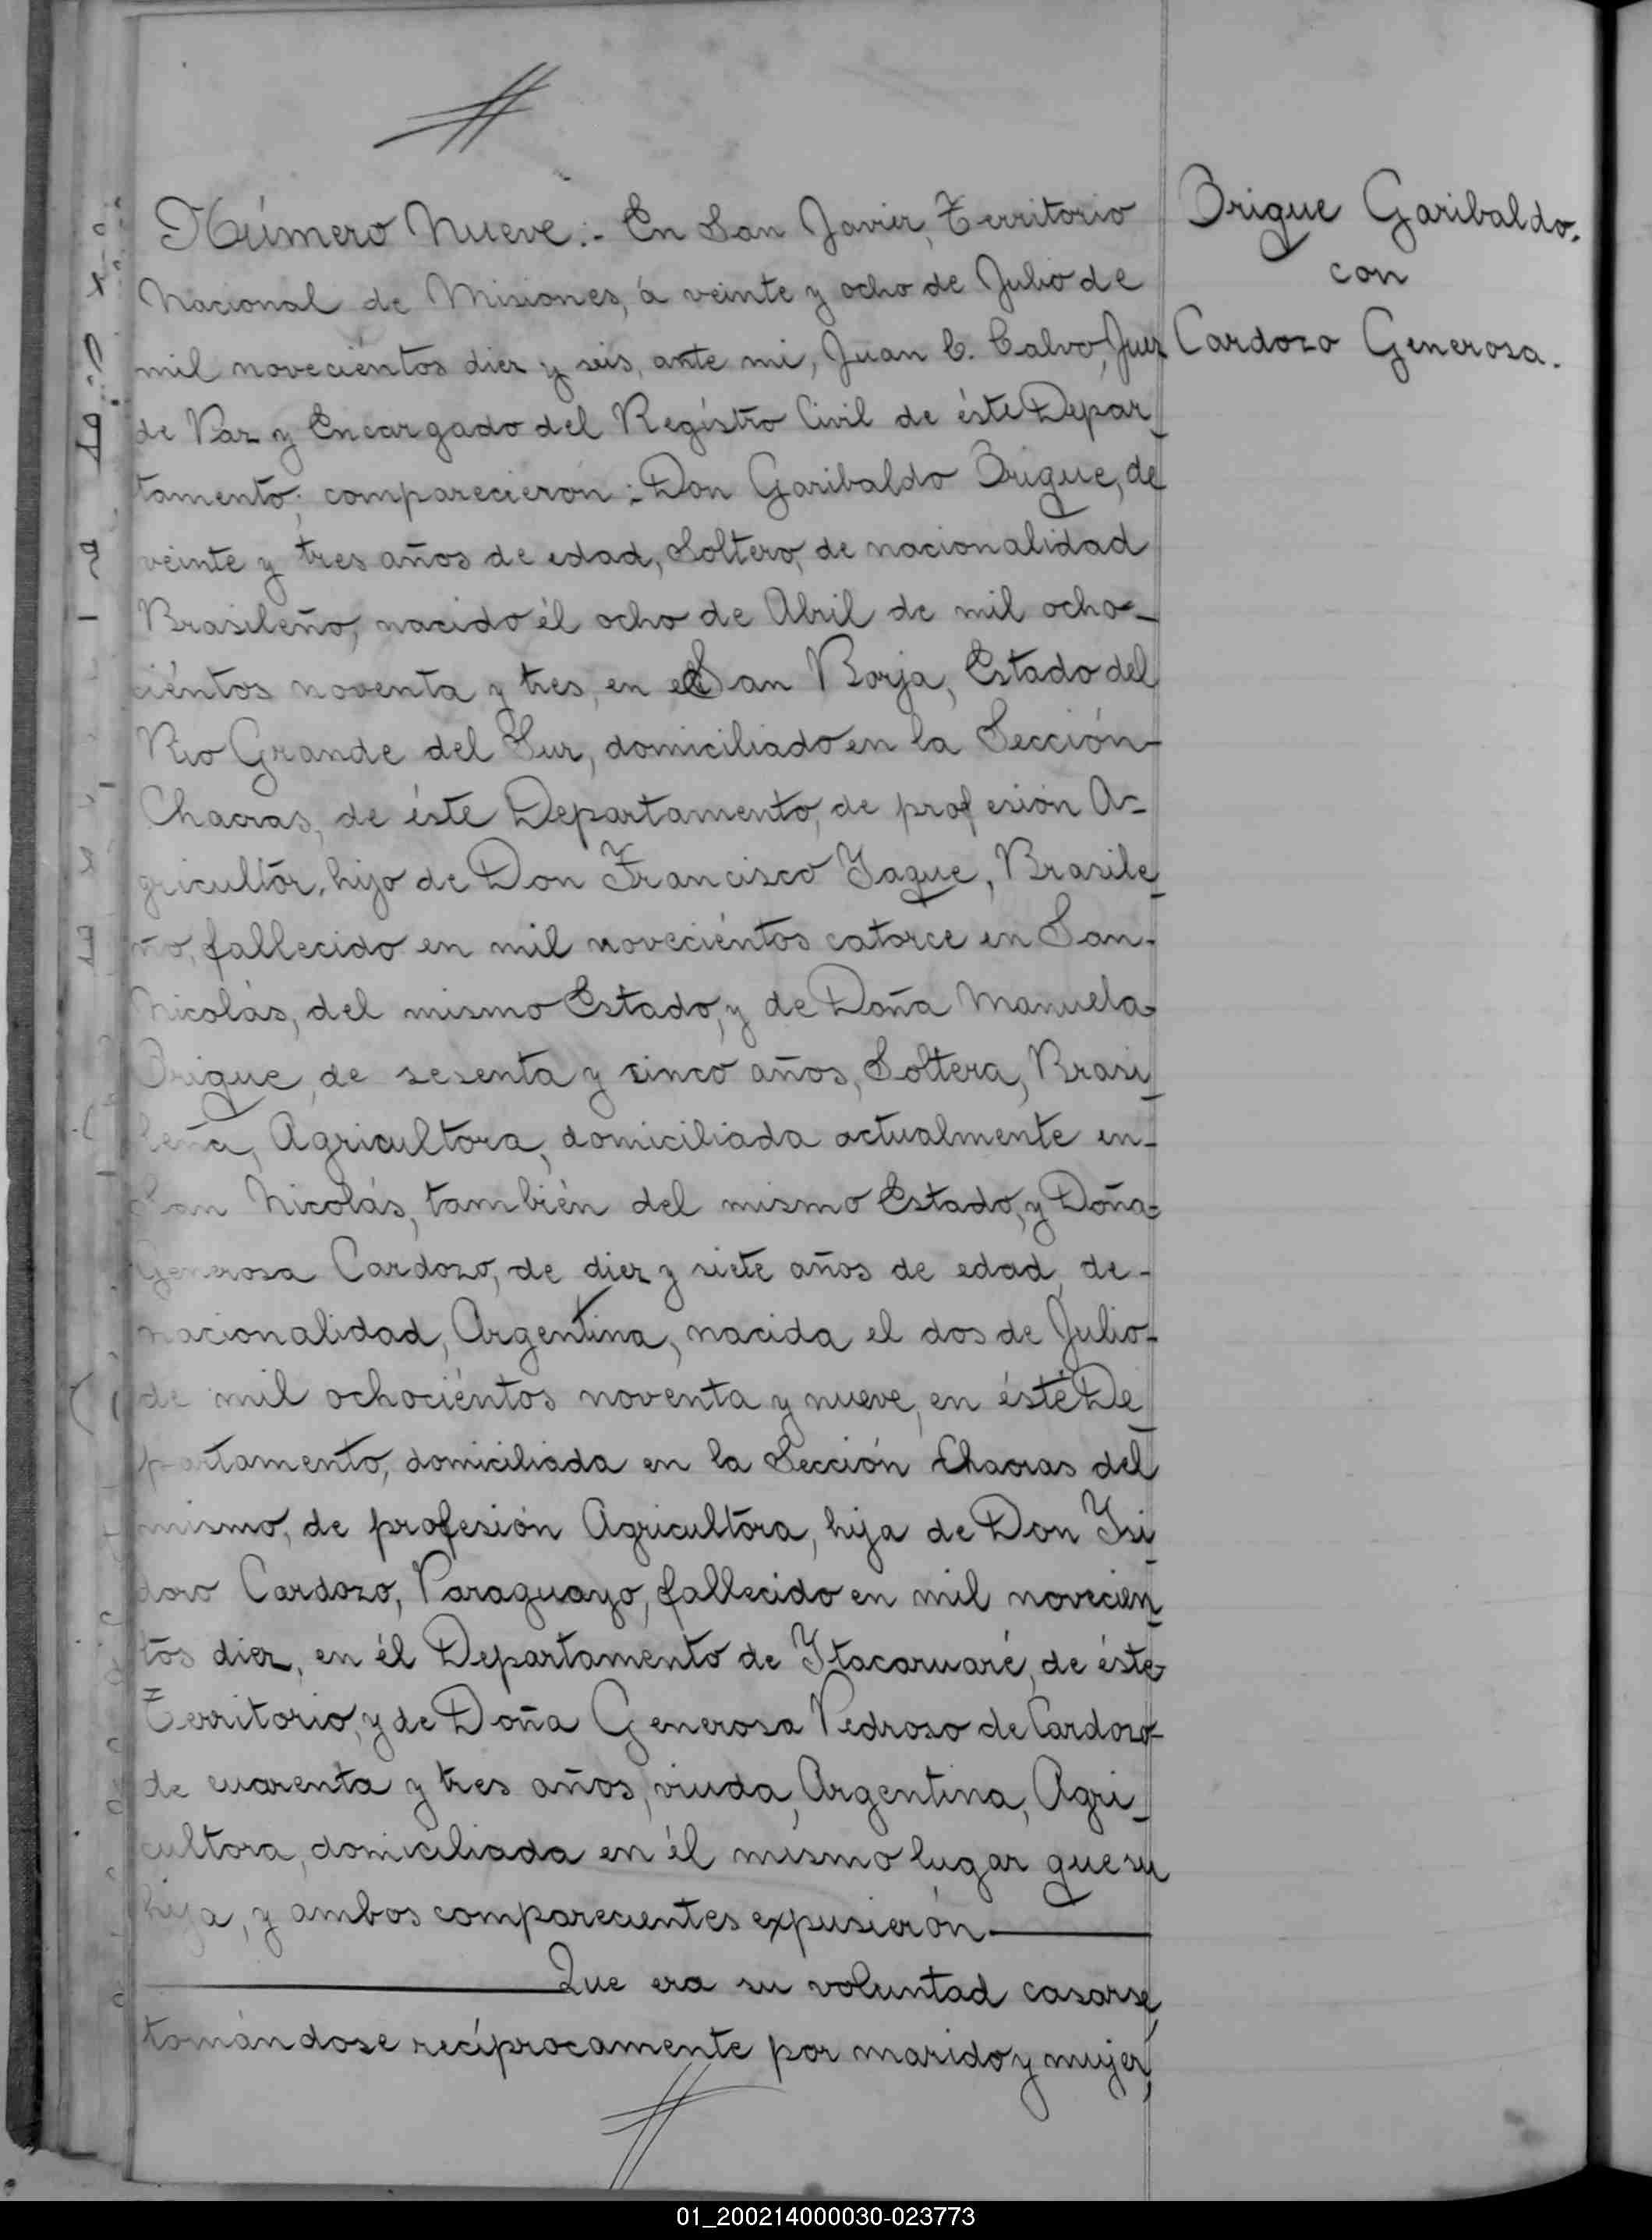 Número Nueve:- En San Javier, Territorio
Nacional de Misiones, á veinte y ocho de Julio de
mil noveciéntos diez y seis, ante mi, Juan C. Calvo, Juez
de Paz y Encargado del Regístro Civil de éste Depar_
tamento; comparecierón: Don Garibaldo Brigue, de
veinte y tres años de edad, Soltero, de nacionalidad
Brasileño, nacido él ocho de Abril de mil ocho-
ciéntos noventa y tres, en San Borja, Estado del
Rio Grande del Sur, domiciliado en la Sección-
Chacras, de éste Departamento, de profesión A=
gricultór, hijo de Don Francisco Yaque, Brasile_
ño, fallecido en mil noveciéntos catorce en San-
Nicolás, del mismo Estado, y de Doña Manuela-
Brigue, de sesenta y cinco años, Soltera, Brasi_
leña, Agricultora, domiciliada actualmente en-
San Nicolás, también del mismo Estado, y Doña-
Generosa Cardozo, de diez y siete años de edad, de-
nacionalidad, Argentina, nacida el dos de Julio-
de mil ochociéntos noventa y nueve, en ésté De_
partamento, domiciliada en la Sección Chacras del
mismo, de profesión Agricultora, hija de Don Ysi_
doro Cardozo, Paraguayo, fallecido en mil novecien_
tos diez, en él Departamento de Ytacaruaré, de éste-
Territorio, y de Doña Generosa Pedroso de Cardozo-
de cuarenta y tres años, viuda, Argentina, Agri_
cultora, domiciliada en él mismo lugar que su
hija, y ambos comparecientes expusierón
Que era su voluntad casarse,
tomándose recíprocamente por marido y mujer,
Brigue Garibaldo.
con
Cardozo Generosa.
01_200214000030-023773